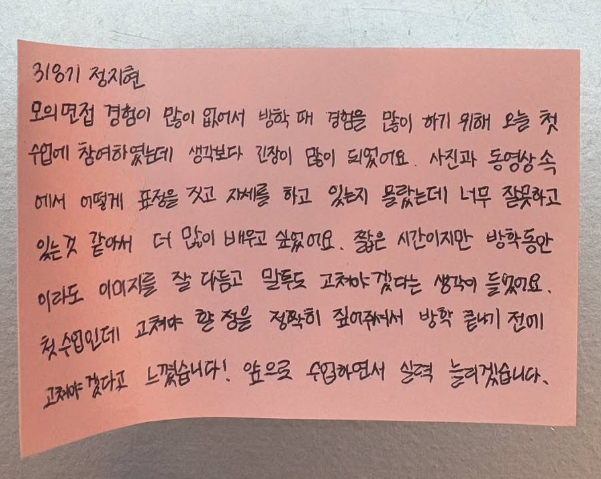 318기 정지현
모의면접 경험이 많이 없어서 방학 때 경험을 많이 하기 위해 오늘 첫
수업에 참여하였는데 생각보다 긴장이 많이 되었어요. 사진과 동영상 속
에서 어떻게 표정을 짓고 자세를 하고 있는지 몰랐는데 너무 잘못하고
있는것 같아서 더 많이 배우고 싶었어요. 짧은 시간이지만 방학동안
이라도 이미지를 잘 다듬고 말투도 고쳐야겠다는 생각이 들었어요.
첫 수업인데 고쳐야 할 점을 정확히 짚어주셔서 방학 끝나기 전에
고쳐야겠다고 느꼈습니다! 앞으로 수업하면서 실력 늘리겠습니다.